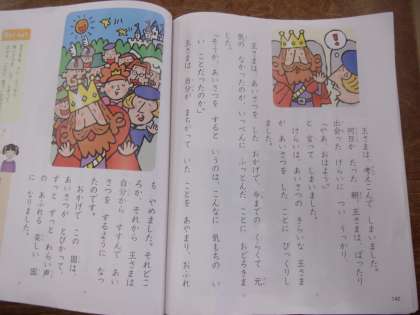 王さまは、考えこんで しまいました。
何日か たった 朝、王さまは、ばったり
出会った けらいに つい うっかり、
「やあ、おはよう。」
と 言って しまいました。
けらいは、あいさつの きらいな 王さま
が あいさつを した ことに びっくりし
ました。
王さまは、あいさつを した おかげで 今までの くらくて 元
気の なかったのが いっぺんに ふっとんだ ことに おどろきま
した。
「そうか、あいさつを すると いうのは、こんなに 気もちの い
い ことだったのか。」
王さまは 自分が まちがって いた ことを あやまり、おふれ
も やめました。それどこ
ろか、それから 王さまは
自分から すすんで あい
さつを するように なっ
たのです。
おかげで この 国は、
あいさつが とびかって、
ずっと ずっと わらい声
の あふれる 楽しい 国
に なりました。
142